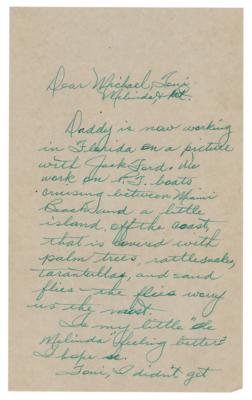 Dear Michael, Toni,
Melinda & Pat.
Daddy is now working
in Florida on a picture
with Jack Ford. We
work on P.T. boats
cruising between Miami
Beach and a little
island, off the coast,
that is covered with
palm trees, rattlesnakes,
tarantullas, and sand
flies - the flies worry
us the most.
Is my little "ole
Melinda" feeling better?
I hope so.
Toni, I didn't get